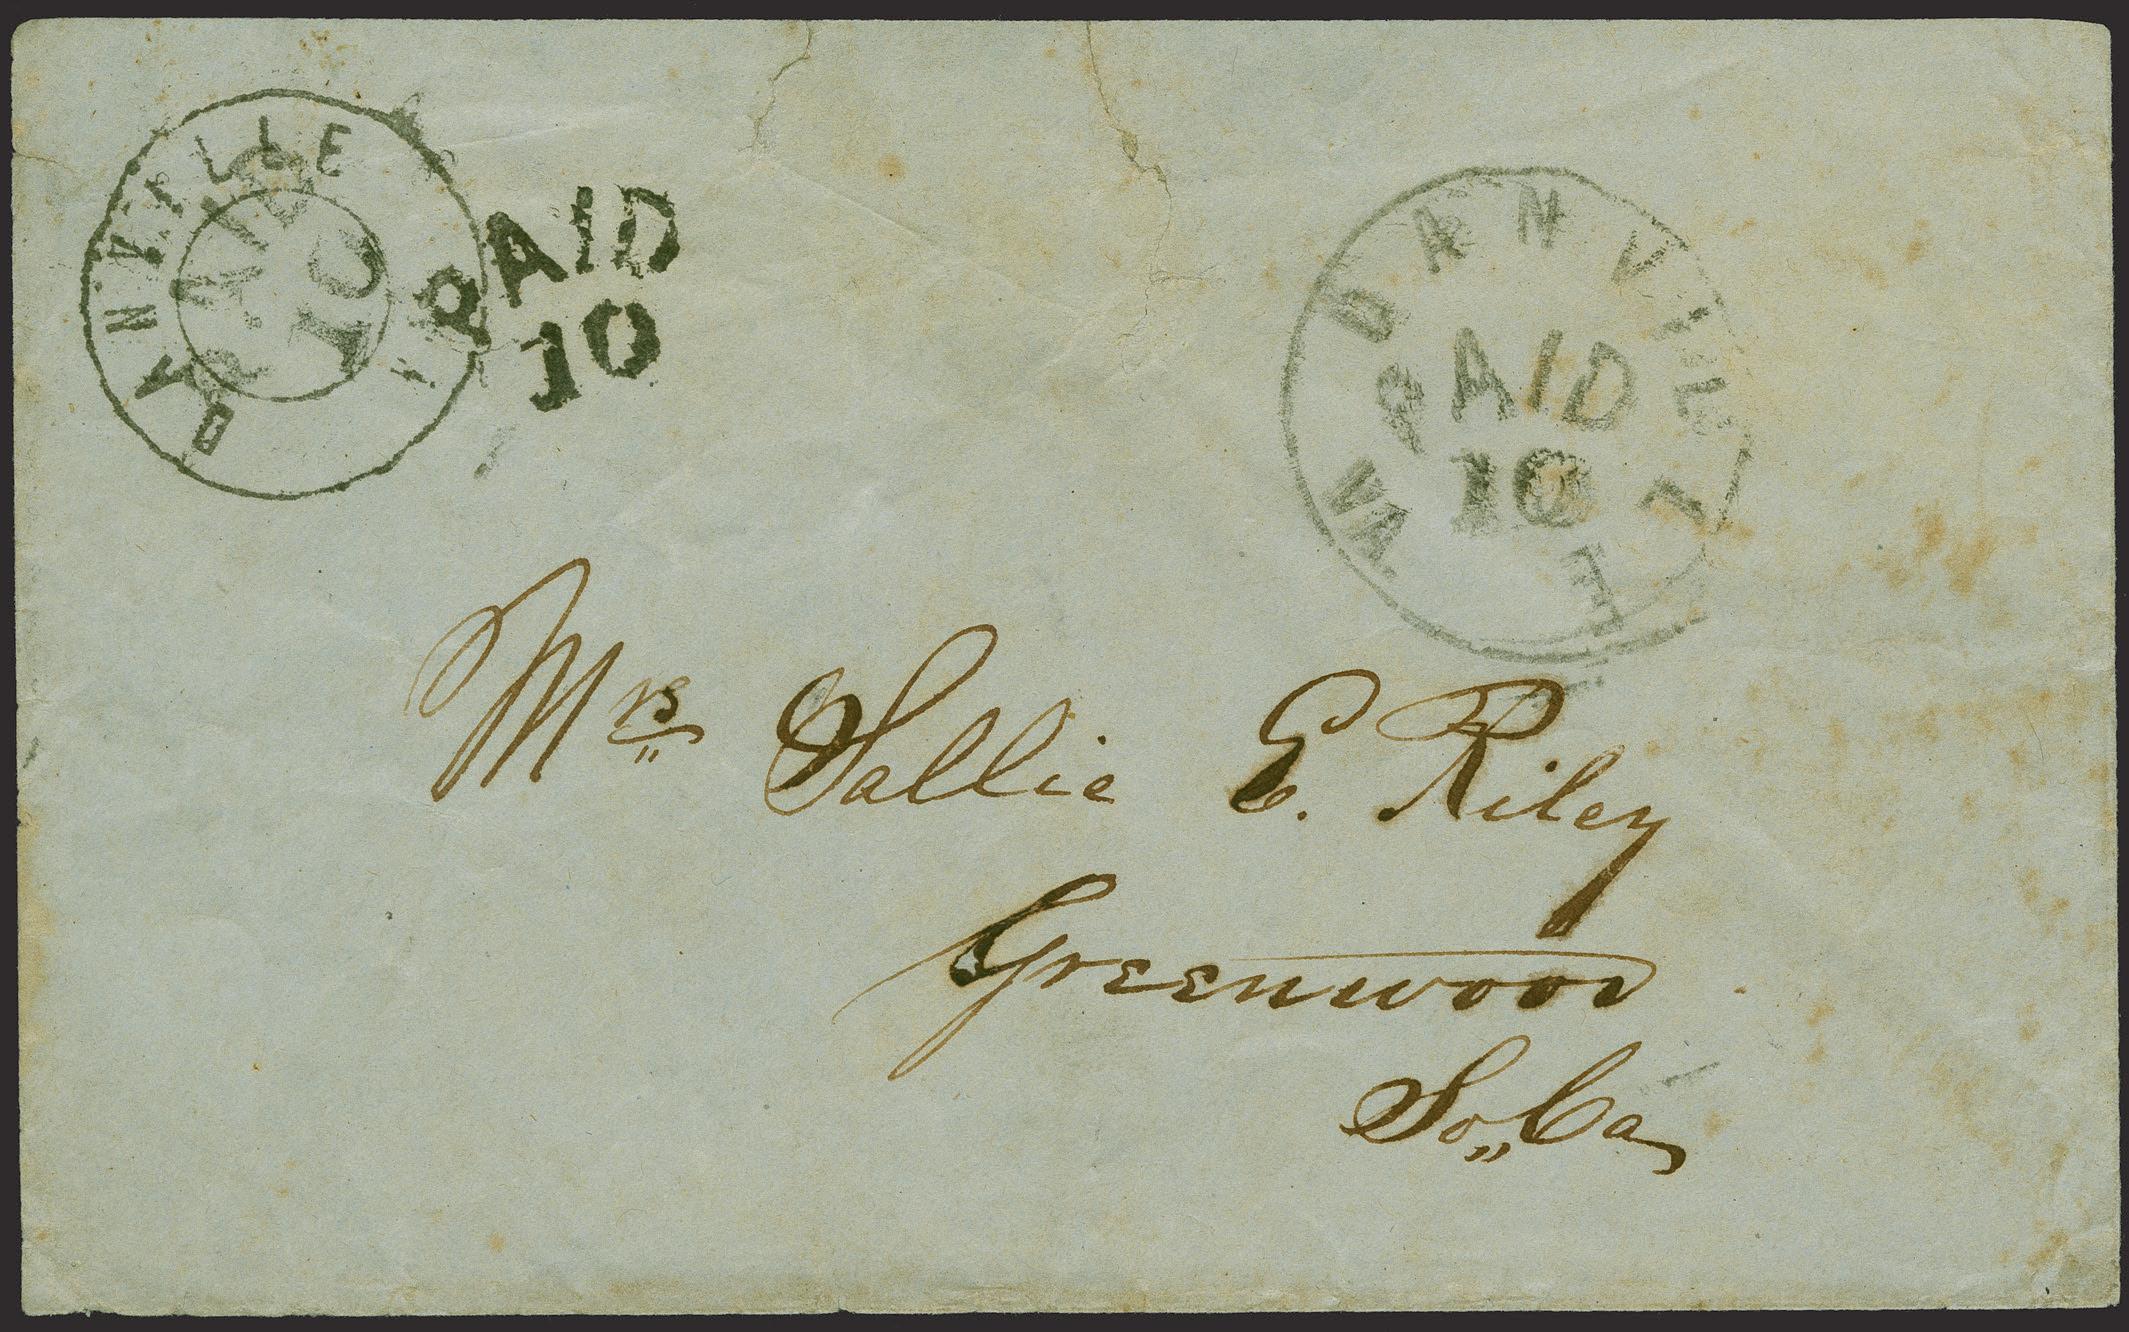 DANVILLE
PAID
10
PAID
10
DANVILLE
VA.
PAID
10
Mrs Sallie E. Riley
Greenwood
So,, Ca,